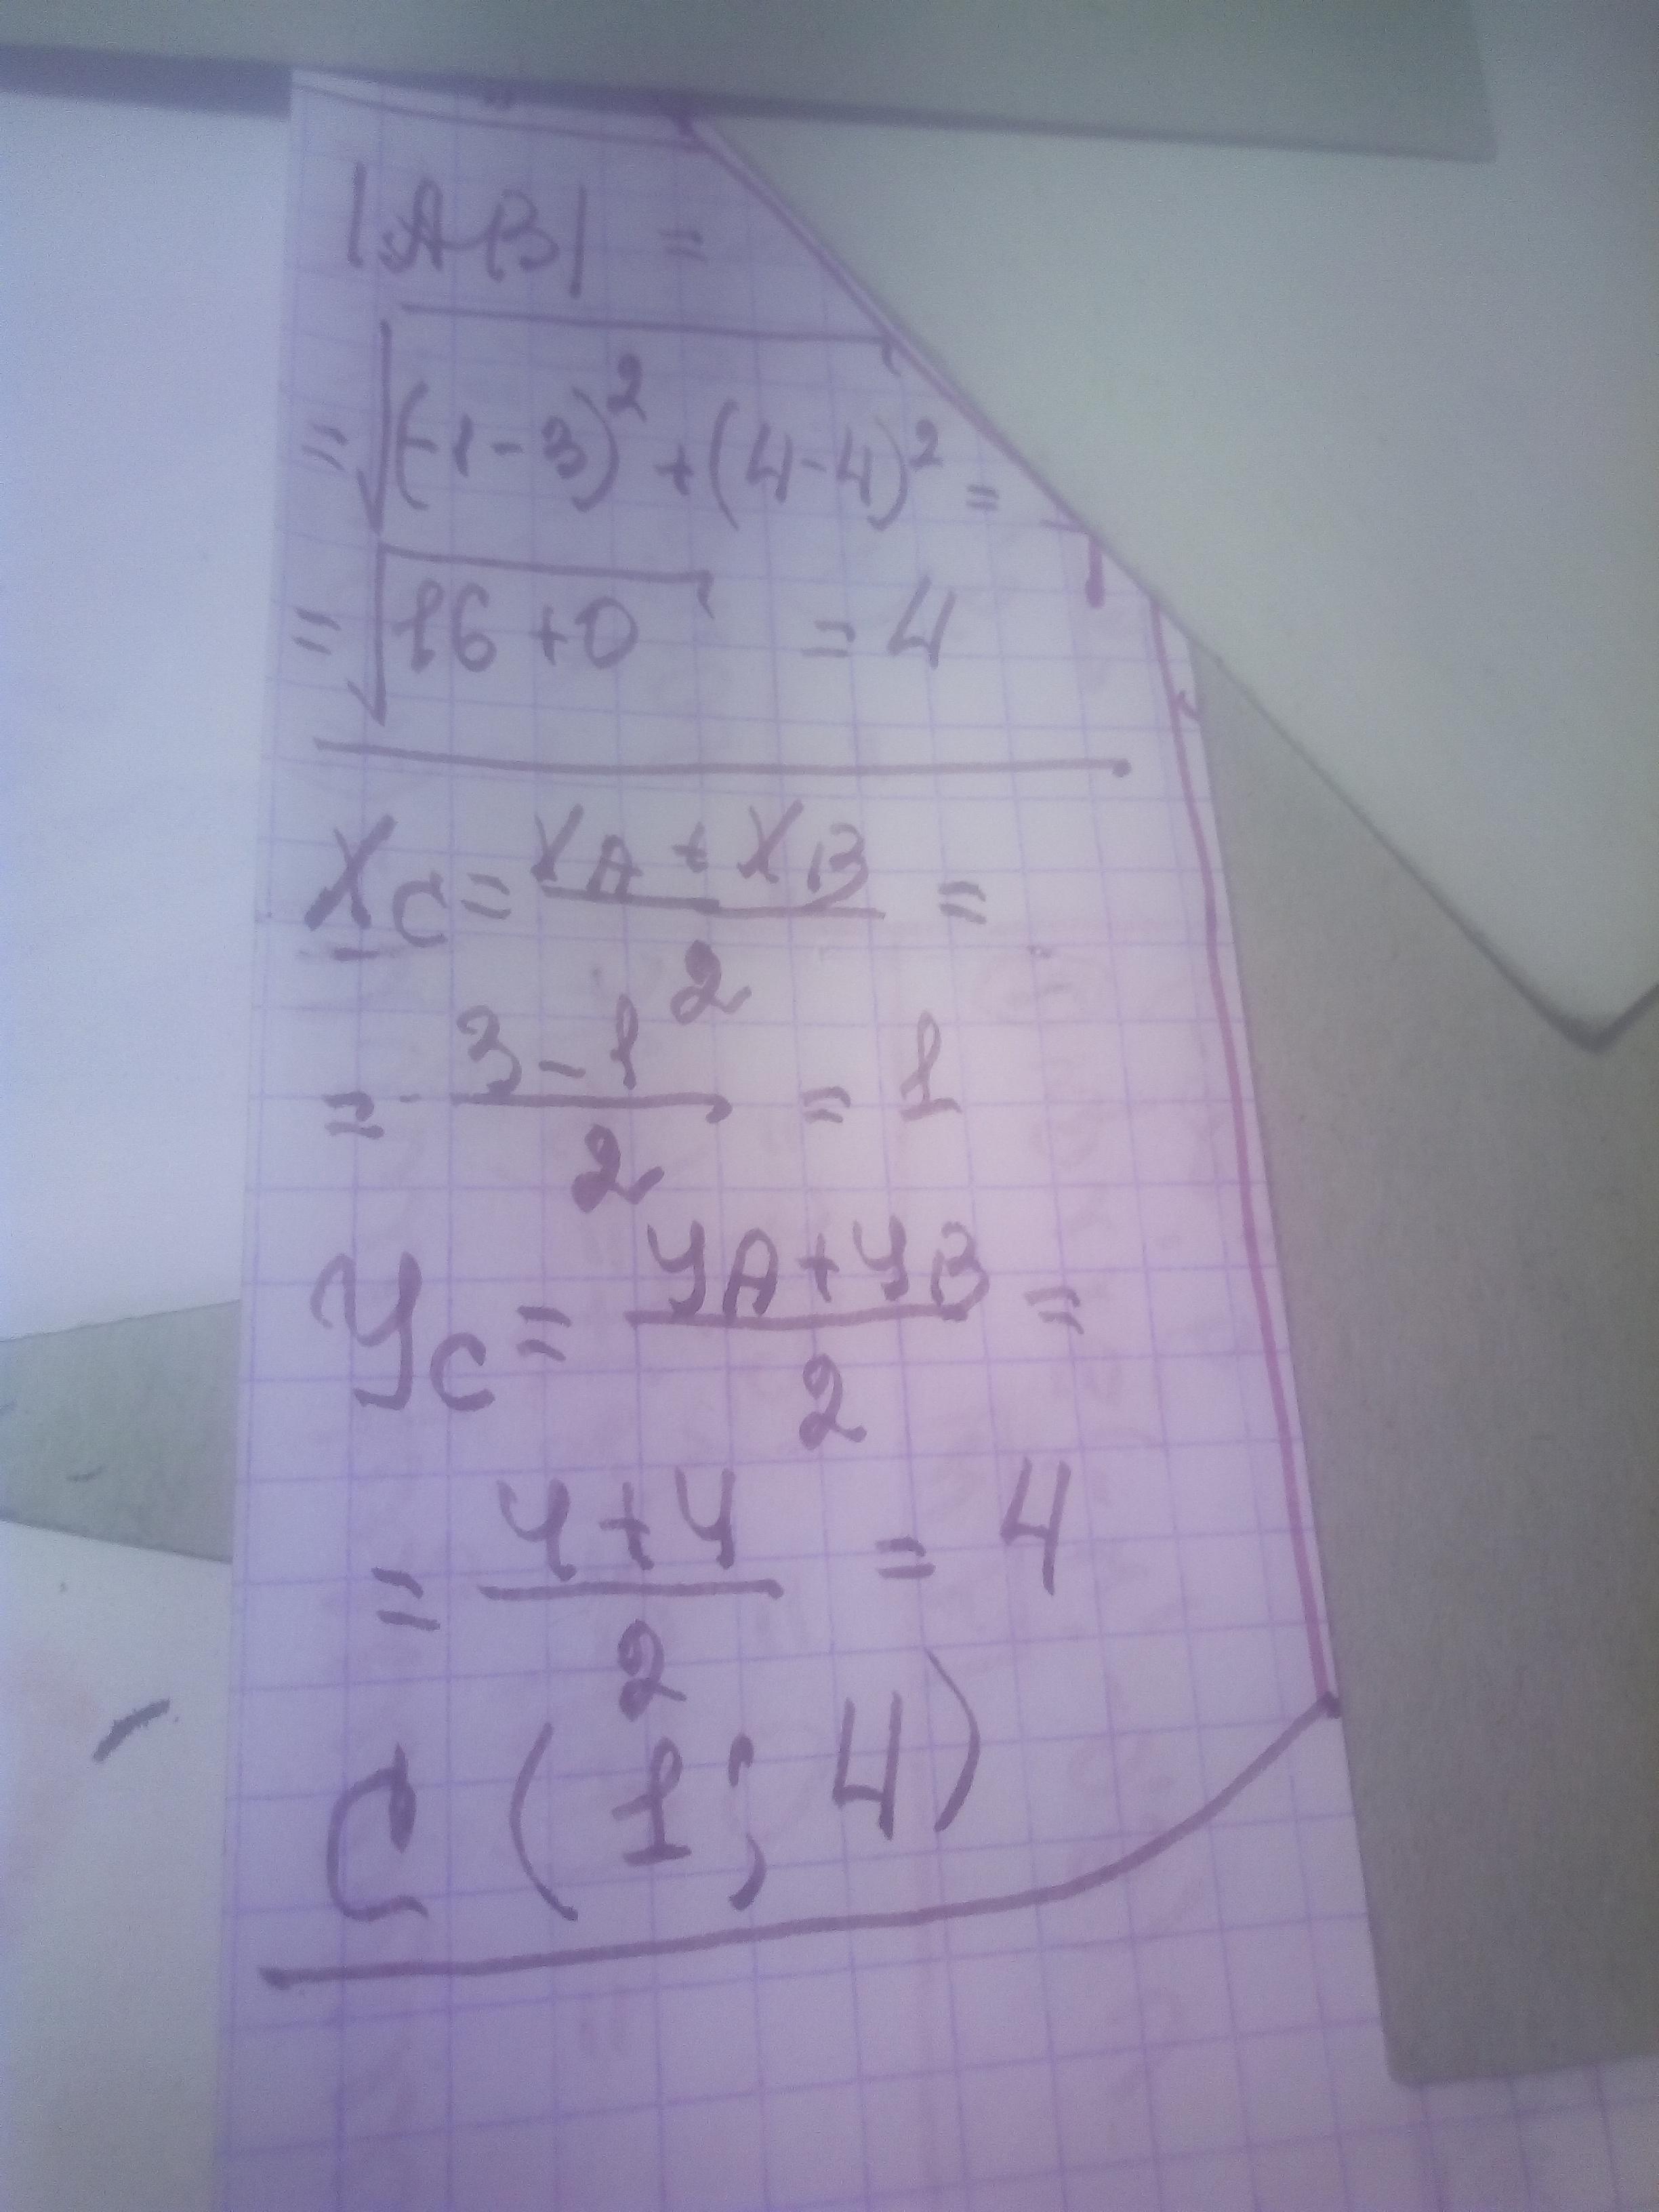 |AB| =
= √(-1-3)² + (4-4)² =
= √16+0 = 4
Xc = XA + XB / 2 =
= 3-1 / 2 = 1
Yc = YA + YB / 2 =
= 4+4 / 2 = 4
C (1; 4)